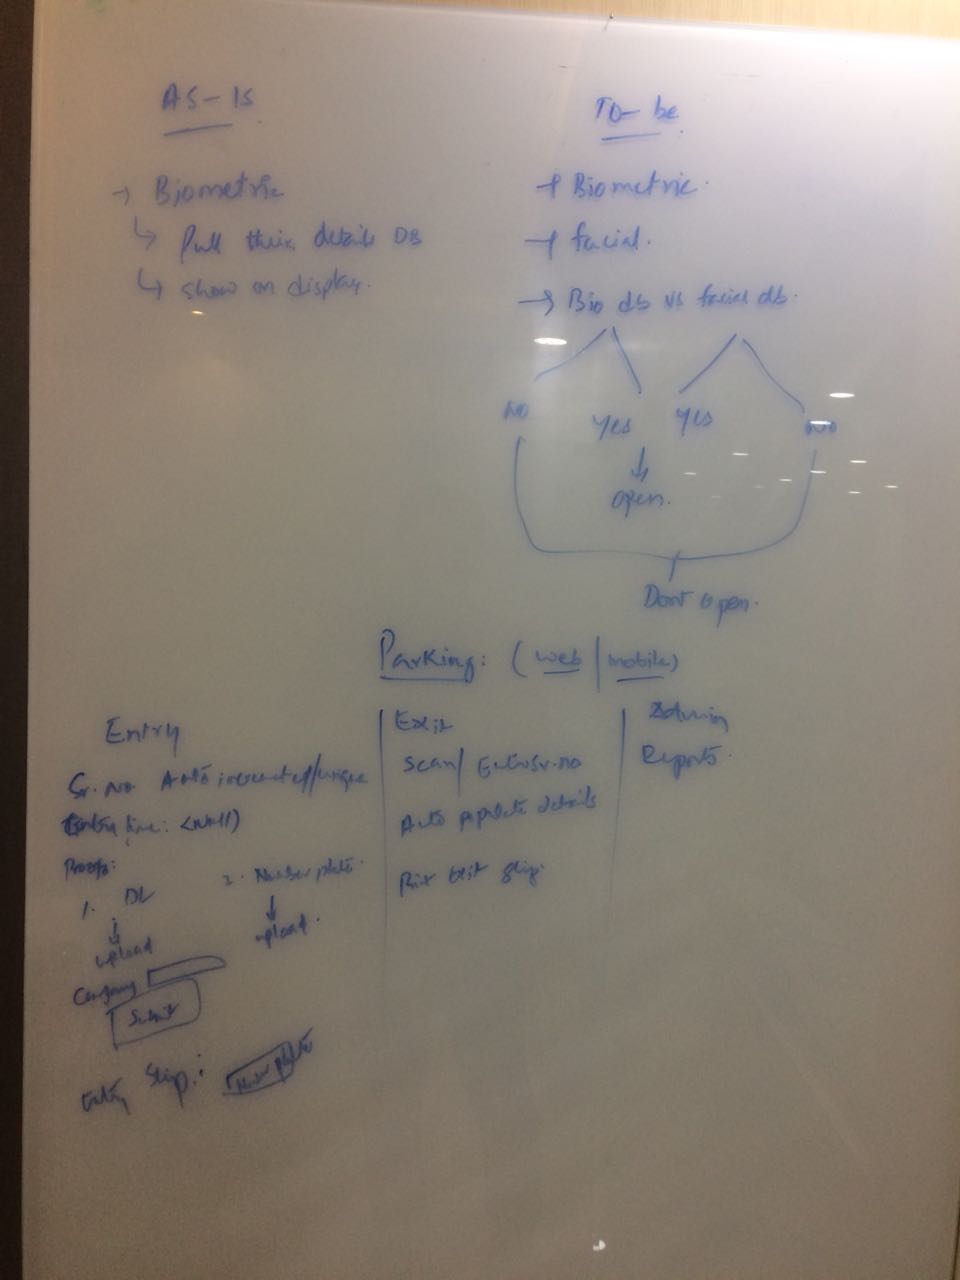 AS-IS
→ Biometric
↳ Pull their details DB
↳ show on display.
TO-be
→ Biometric.
→ facial.
→ Bio db vs facial db.
NO YES YES NO
↓
open.
Dont open.
Parking: (web | mobile)
Entry
Sr. No Auto incremented/unique
Entry time: <Null>
Proofs:
1. DL
↓
upload
2. Number plate.
↓
upload.
Company
Submit
Entry Slip:
Number plate
Exit
Scan/ Enter Sr. no
Auto populate details
exit slip.
Admin
Reports.